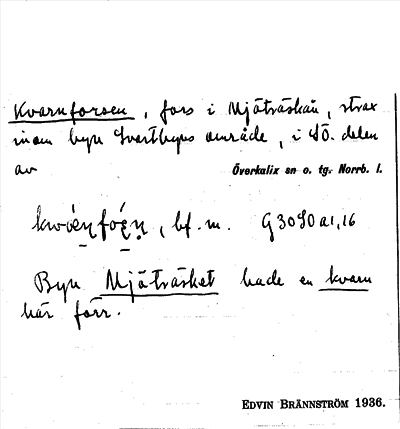 Kvarnforsen, fors i Mjöträskån, strax
inom byn Svartbyns område, i SÖ. delen
av Överkalix sn o. tg. Norrb. l.
bf. m. G3090a1,16
Byn Mjöträsket hade en kvarn
här förr.
EDVIN BRÄNNSTRÖM 1936.